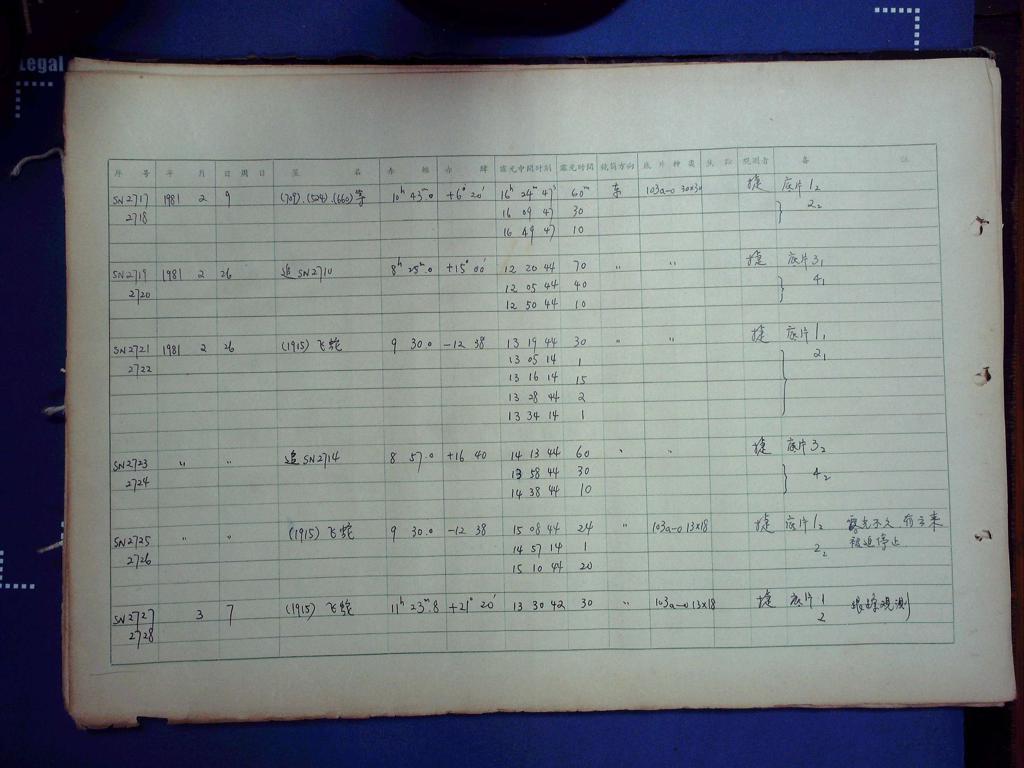 Legal
序 号 年 月 日 周日 星 名 赤 经 赤 纬 露光中间时刻 露光时间 镜筒方向 底片种类 观测者 备 注
SN2717 1981 2 9 (709).(524).(660)等 10h 43m.0 +6° 20′ 16h 24m 47s 60m 东 103a-0 30×30 捷 底片 1₂
2718 16 09 47 30 } 2₂
16 49 47 10
SN2719 1981 2 26 追SN2710 8h 25m.0 +15° 00′ 12 20 44 70 〃 〃 捷 底片 3₁
2720 12 05 44 40 } 4₁
12 50 44 10
SN2721 1981 2 26 (1915) 飞蛇 9 30.0 -12 38 13 19 44 30 〃 〃 捷 底片 1₁
2722 13 05 14 1 } 2₁
13 16 14 15
13 28 44 2
13 34 14 1
SN2723 〃 〃 追SN2714 8 57.0 +16 40 14 13 44 60 〃 〃 捷 底片 3₂
2724 13 58 44 30 } 4₂
14 38 44 10
SN2725 〃 〃 (1915) 飞蛇 9 30.0 -12 38 15 08 44 24 〃 103a-0 13×18 捷 底片 1₂ 露光不久,有云来
2726 14 57 14 1 2₂ 被迫停止
15 10 44 20
SN2727 3 7 (1915) 飞蛇 11h 23m.8 +21° 20′ 13 30 42 30 〃 103a-0 13×18 捷 底片 1 跟踪观测
2728 2